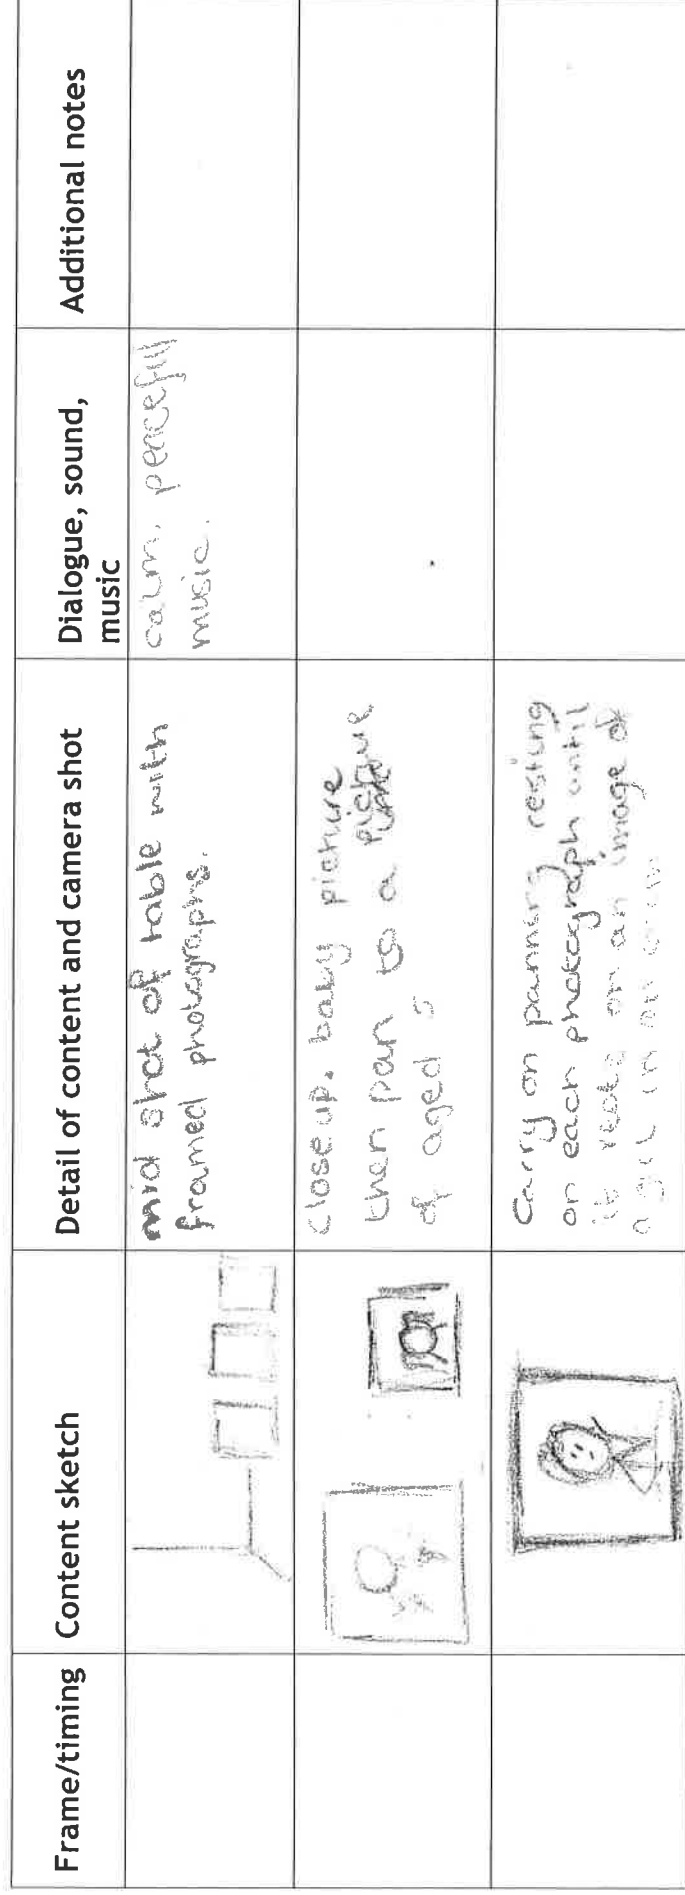 Frame/timing
Content sketch
Detail of content and camera shot
Dialogue, sound,
music
Additional notes
mid shot of table with
framed photographs.
calm, peaceful
music.
close up. baby picture
then pan to a picture
of aged 5
Carry on panning resting
on each photograph until
it rests on an image of
a girl in